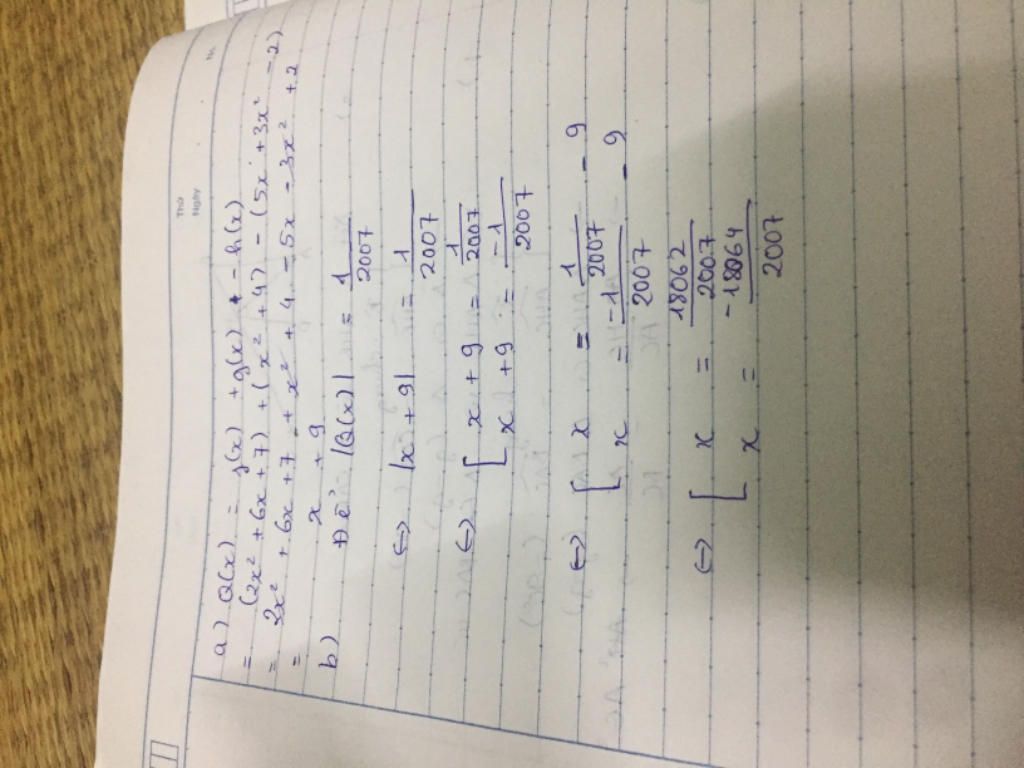 Thứ
Ngày
a) Q(x) = f(x) + g(x) - h(x)
= (2x² + 6x + 7) + (x² + 4) - (5x + 3x² - 2)
= 2x² + 6x + 7 + x² + 4 - 5x - 3x² + 2
= x + 9
b) Để |Q(x)| = 1/2007
⇔ |x + 9| = 1/2007
⇔ [ x + 9 = 1/2007
x + 9 = -1/2007
⇔ [ x = 1/2007 - 9
x = -1/2007 - 9
⇔ [ x = 18062/2007
x = -18064/2007